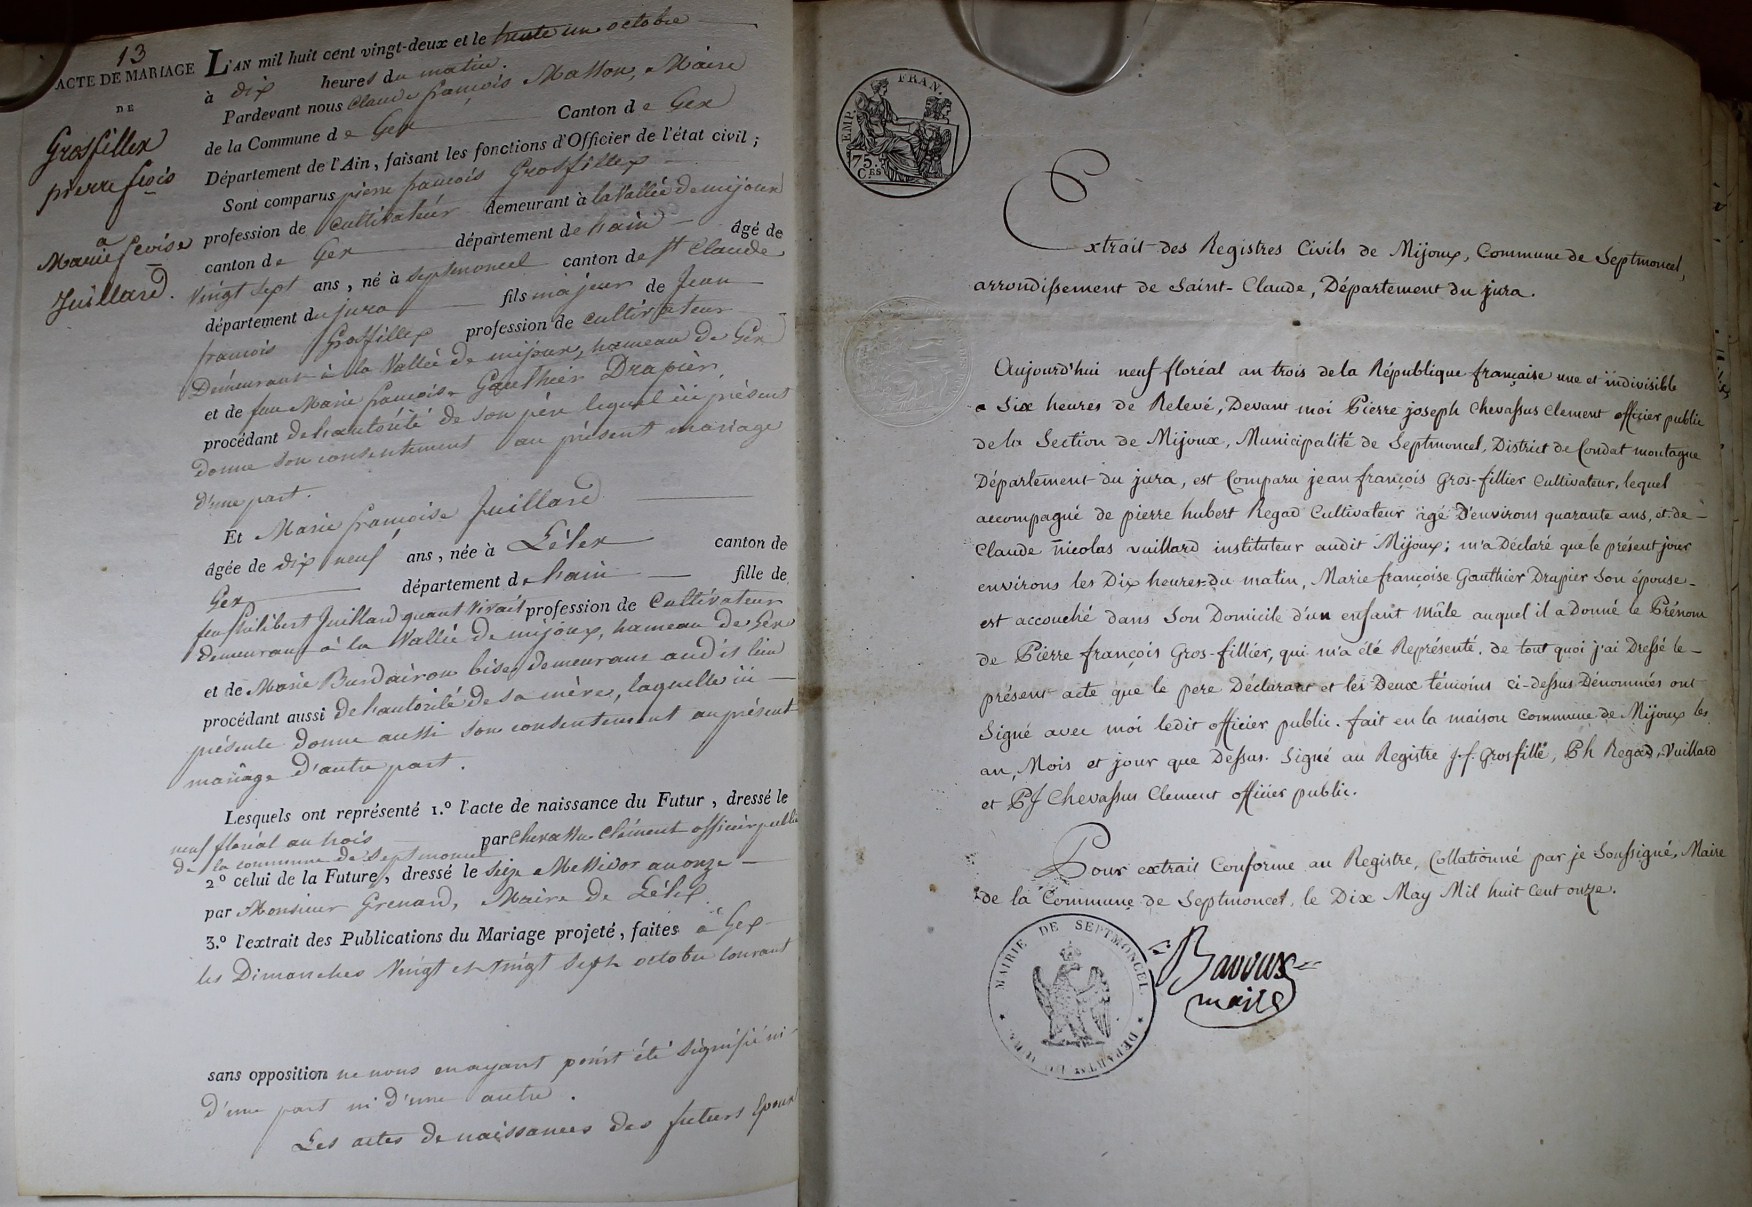 13
ACTE DE MARIAGE
DE
Grosfillex
pierre fçois
a
Marie fcoise
Juillard.
L'AN mil huit cent vingt-deux et le trente un octobre
à dix heures du matin.
Pardevant nous Claude françois Matton, Maire
de la Commune de Gex Canton de Gex
Département de l'Ain, faisant les fonctions d'Officier de l'état civil ;
Sont comparus pierre francois Grosfillex
profession de Cultivateur demeurant à la Vallée de mijoux
canton de Gex département de l'ain âgé de
Vingt Sept ans, né à Septmoncel canton de St Claude
département du jura fils majeur de Jean
francois Grosfillex profession de Cultivateur
Demeurant à la Vallée de mijoux, hameau de Gex
et de feue Marie françoise Gauthier Drapier
procédant de l'autorité de son père lequel ici présent
donne son consentement au présent mariage
d'une part.
Et Marie françoise Juillard
âgée de dix neuf ans, née à Lélex canton de
Gex département de l'ain fille de
feu Philibert Juillard quant vivait profession de Cultivateur
demeurant à la Vallée de mijoux, hameau de Gex
et de Marie Burdairon bise demeurant audit lieu
procédant aussi de l'autorité de sa mère, laquelle ici
présente donne aussi son consentement au présent
mariage d'autre part.
Lesquels ont représenté 1.° l'acte de naissance du Futur, dressé le
neuf floréal an trois par Chevassu Clément officier public
de la commune de Septmoncel
2° celui de la Future, dressé le Seize Messidor an onze
par Monsieur Grenard, Maire de Lélex
3.° l'extrait des Publications du Mariage projeté, faites à Gex
les Dimanches Vingt et vingt Sept octobre courant
sans opposition ne nous en ayant point été signifié ni
d'une part ni d'une autre.
Les actes de naissances des futurs Epoux
EMP. FRAN.
75.
C.ES
Extrait des Registres Civils de Mijoux, Commune de Septmoncel,
arrondissement de Saint-Claude, Département du jura.
Aujourd'hui neuf floréal an trois de la République française une et indivisible
a Six heures de Relevé, Devant moi Pierre joseph Chevassus Clement officier public
de la Section de Mijoux, Municipalité de Septmoncel, District de Condat montagne
Département du jura, est Comparu jean françois Gros-fillier Cultivateur, lequel
accompagné de pierre hubert Regad Cultivateur agé D'environs quarante ans, et de
Claude nicolas vuillard instituteur audit Mijoux; m'a Déclaré que le présent jour
environs les Dix heures du matin, Marie françoise Gauthier Drapier Son épouse
est accouché dans Son Domicile d'un enfant mâle auquel il a Donné le Prénom
de Pierre françois Gros-fillier, qui m'a été Représenté. de tout quoi j'ai Dressé le
présent acte que le pere Déclarant et les Deux témoins ci-dessus Dénommés ont
Signé avec moi ledit officier public. fait en la maison Commune de Mijoux les
an, Mois et jour que Dessus. Signé au Registre J.f. Grosfillé, Ph Regad, Vuillard
et PJ Chevassus Clement officier public.
Pour extrait Conforme au Registre, Collationné par je Soussigné, Maire
de la Commune de Septmoncel, le Dix May Mil huit Cent onze.
MAIRIE DE SEPTMONCEL
DEPART.t DU JURA
Bavoux
maire